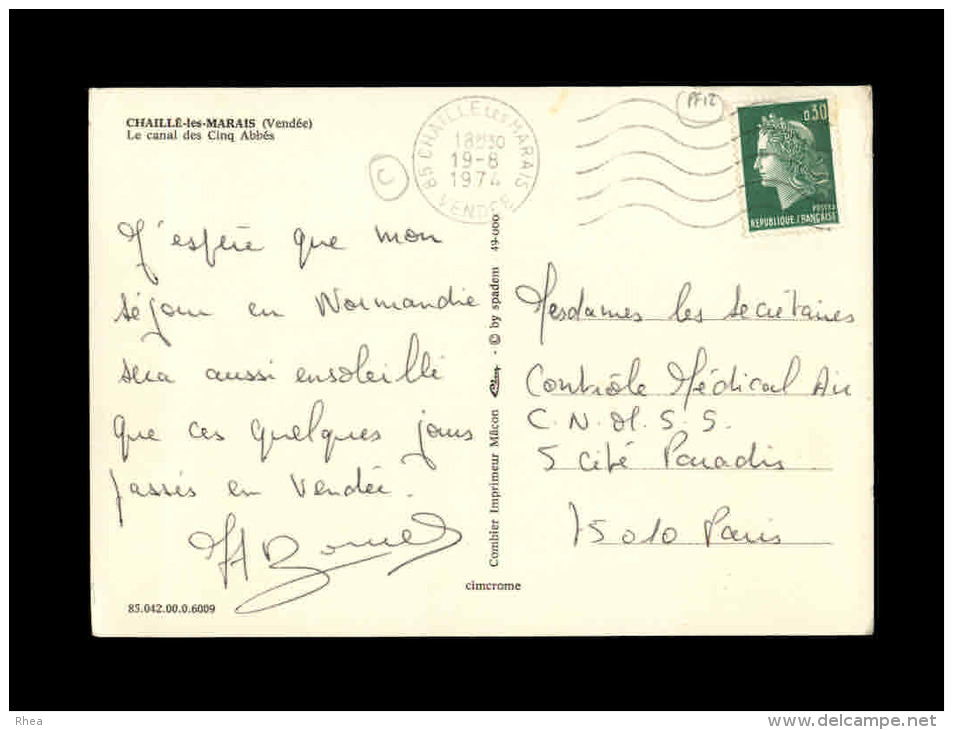 CHAILLÉ-les-MARAIS (Vendée)
Le canal des Cinq Abbés
C
85 CHAILLE LES MARAIS
18H30
19-8
1974
VENDEE
PF12
0,30
POSTES
REPUBLIQUE FRANÇAISE
J'espère que mon
séjour en Normandie
sera aussi ensoleillé
que ces quelques jours
passés en Vendée.
Mesdames les Secrétaires
Contrôle Médical Air
C.N.M.S.S.
5 cité Paradis
75010 Paris
Combier Imprimeur Mâcon - © by spadem 49-000
cimcrome
85.042.00.0.6009
Rhea
www.delcampe.net